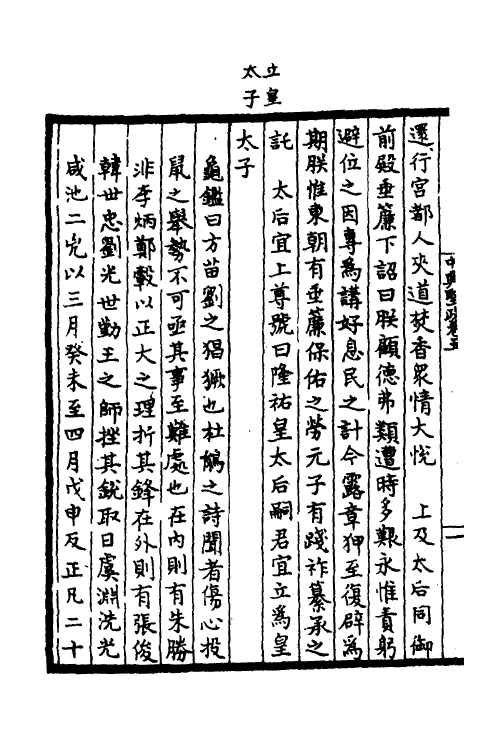 立皇
太子
中興聖政卷五
一
還行宮都人夾道焚香眾情大悅　上及太后同御
前殿垂簾下詔曰朕顧德弗類遭時多艱永惟責躬
避位之因專為講好息民之計今露章狎至復辟為
期朕惟東朝有垂簾保佑之勞元子有踐祚纂承之
託　太后宜上尊號曰隆祐皇太后嗣君宜立為皇
太子
龜鑑曰方苗劉之猖獗也杜鵑之詩聞者傷心投
鼠之舉勢不可亟其事至難處也在內則有朱勝
非李炳鄭瑴以正大之理折其鋒在外則有張俊
韓世忠劉光世勤王之師挫其銳取日虞淵洗光
咸池二兇以三月癸未至四月戊申反正凡二十